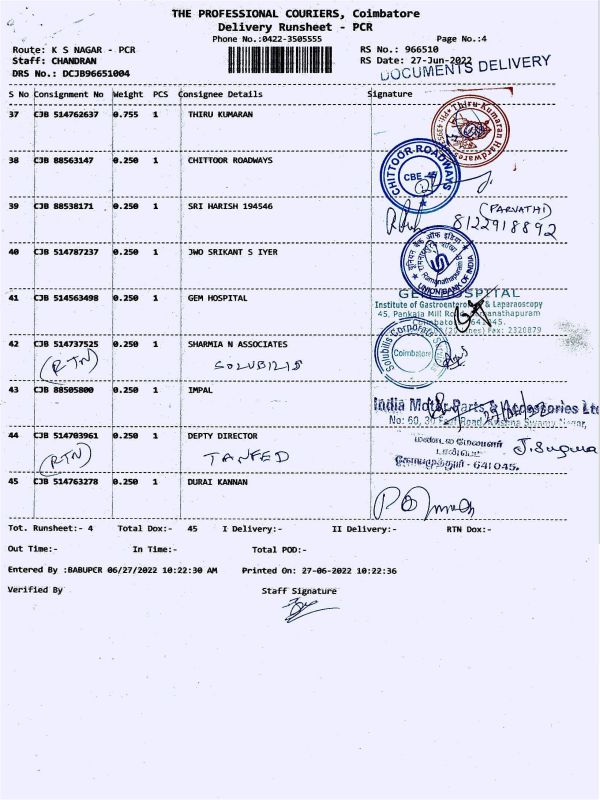 THE PROFESSIONAL COURIERS, Coimbatore
Delivery Runsheet - PCR
Phone No.:0422-3505555
Page No.:4
Route: K S NAGAR - PCR
RS No.: 966510
Staff: CHANDRAN
RS Date: 27-Jun-2022
DRS No.: DCJB96651004
DOCUMENTS DELIVERY
S No Consignment No Weight PCS Consignee Details Signature
37 CJB 514762637 0.755 1 THIRU KUMARAN
Thiru Kumaran Hardwares
38 CJB 88563147 0.250 1 CHITTOOR ROADWAYS
CHITTOOR ROADWAYS
CBE - 45
39 CJB 88538171 0.250 1 SRI HARISH 194546
(PARVATHI)
8122918892
40 CJB 514787237 0.250 1 JWO SRIKANT S IYER
यूनियन बैंक ऑफ इंडिया
UNION BANK OF INDIA
41 CJB 514563498 0.250 1 GEM HOSPITAL
GEM HOSPITAL
Institute of Gastroenterology & Laparoscopy
45, Pankaja Mill Road, Ramanathapuram
Coimbatore - 641045.
Fax: 2320879
42 CJB 514737525 0.250 1 SHARMIA N ASSOCIATES
(RTN)
SOLUBILIS
Solubilis Corporate
Coimbatore
43 CJB 88505800 0.250 1 IMPAL
India Motor Parts & Accessories Ltd
No: 60, Road, Krishna Swamy Nagar,
44 CJB 514703961 0.250 1 DEPTY DIRECTOR
(RTN)
TANFED
மண்டல மேலாளர்
டான்பெட்
கோயமுத்தூர் - 641 045.
J. Suguna
45 CJB 514763278 0.250 1 DURAI KANNAN
Tot. Runsheet:- 4 Total Dox:- 45 I Delivery:- II Delivery:- RTN Dox:-
Out Time:- In Time:- Total POD:-
Entered By :BABUPCR 06/27/2022 10:22:30 AM Printed On: 27-06-2022 10:22:36
Verified By Staff Signature